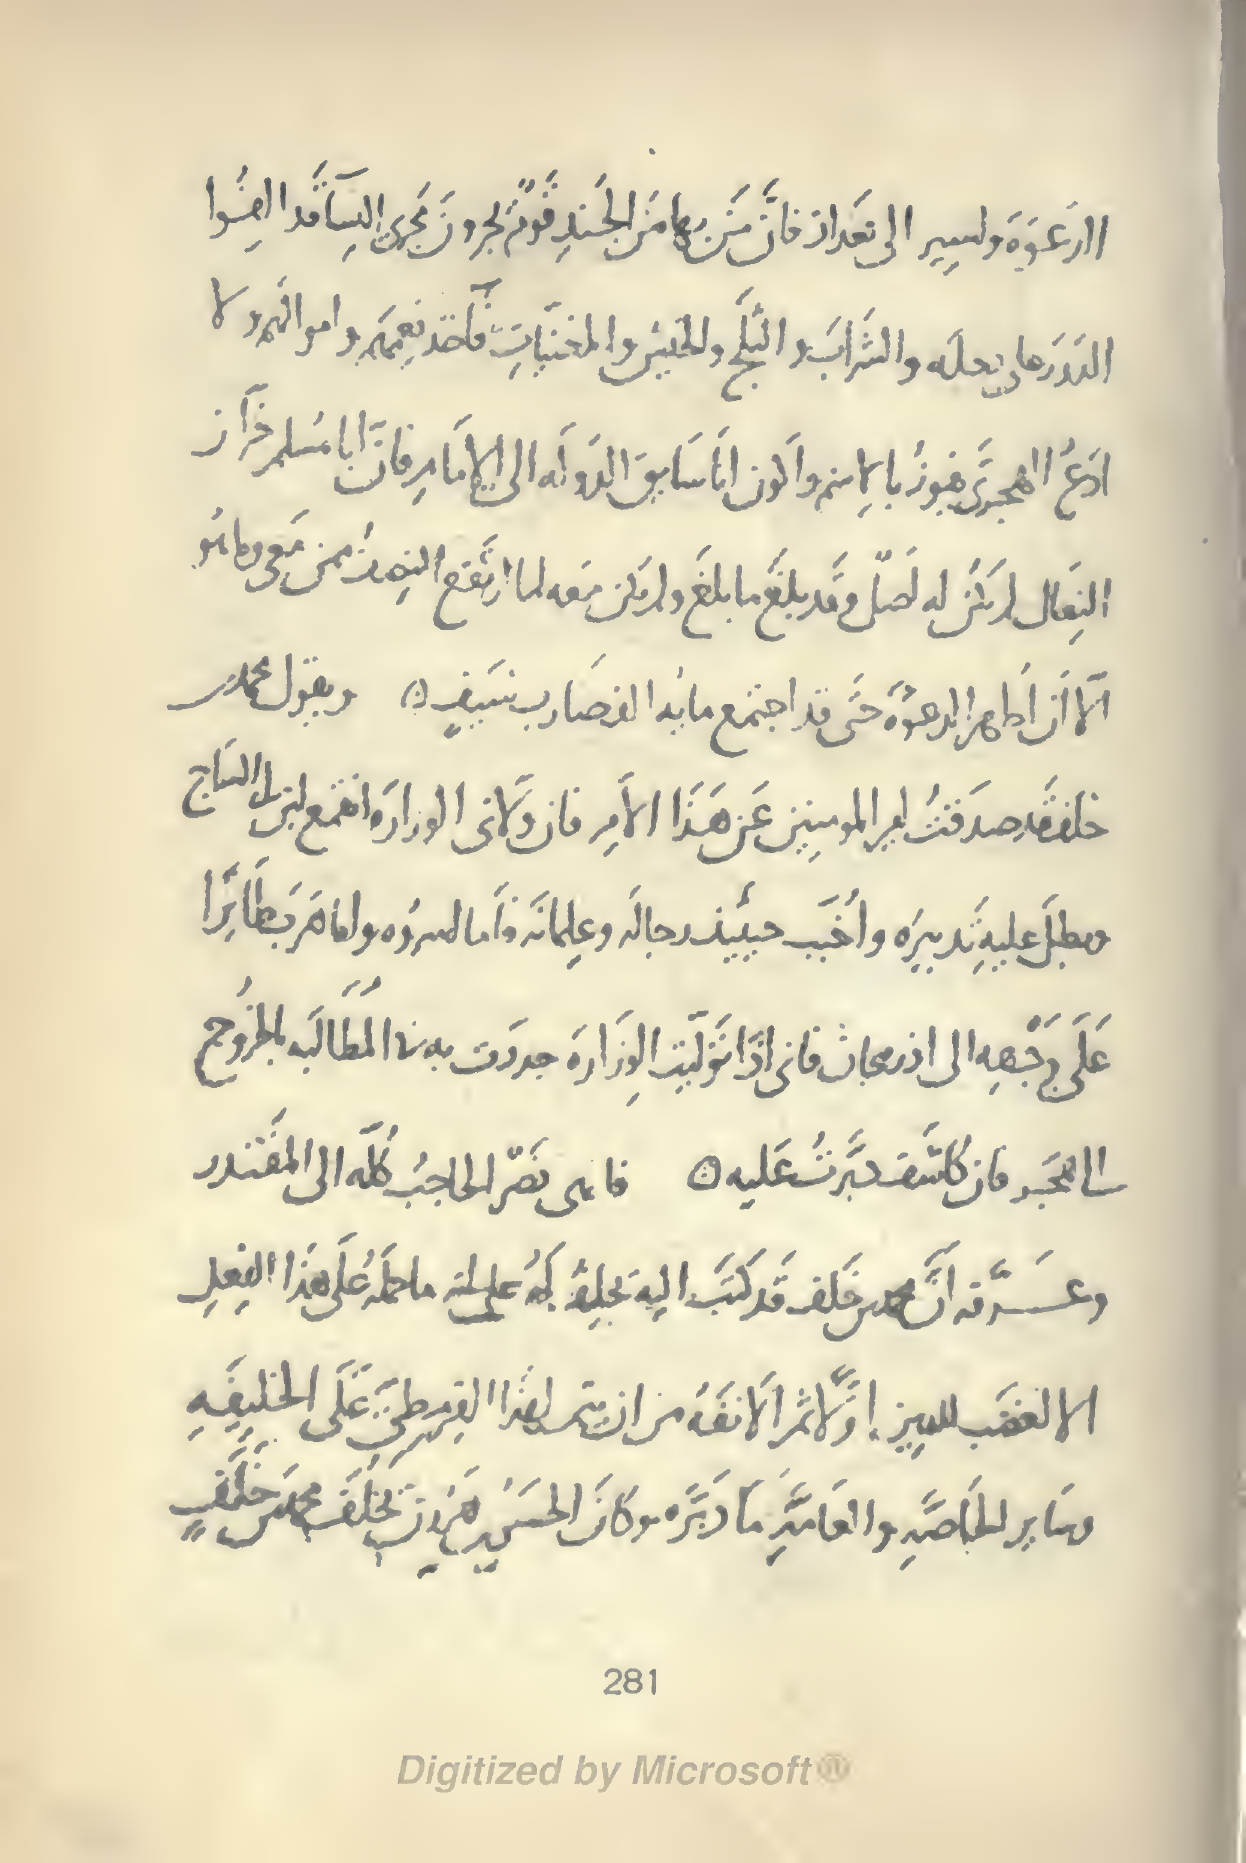 الدعوة ونسير الى بغداد فان من بها من الجند قوم يجرون مجرى النسآ قد الفوا
الدور على دجله والشراب والثلج والخيش والمغنيات فآخذ نعيمهم واموالهم ولا
ادع الهجرى يفوز بالاسم واكون انا سابق الدوله الى الامام فان ابا مسلم خراز
النعال لم يكن له اصل وقد بلغ ما بلغ ولم يكن معه لما ارتفع النصف ممن معى وما هو
الا ان اظهر الدعوة حتى قد اجتمع مايه الف ضارب بسيف ويقول محمد بن
خلف قد صدقت امير المومنين عن هذا الامر فان ولانى الوزاره انقمع ابن ابى الساج
وبطل عليه تدبيره واخبب حينيذ رجاله وغلمانه فاما اسروه واما هرب طايرا
على وجهه الى اذربيجان فانى اذا توليت الوزاره جددت به فى المطالبه بالخروج
الى الهجر فان كاشف دبرت عليه فانهى نصر الحاجب كله الى المقتدر
وعرفه ان محمد بن خلف قد كتب اليه يحلف له على انه ما حمله على هذا الفعل
الا الغضب للدين اولا ثم الانفه من ان يتم لهذا القرمطى على الخليفه
وساير الخاصه والعامه ما دبره وكان الحسن بن هرون يخلف محمد بن خلف
281
Digitized by Microsoft®